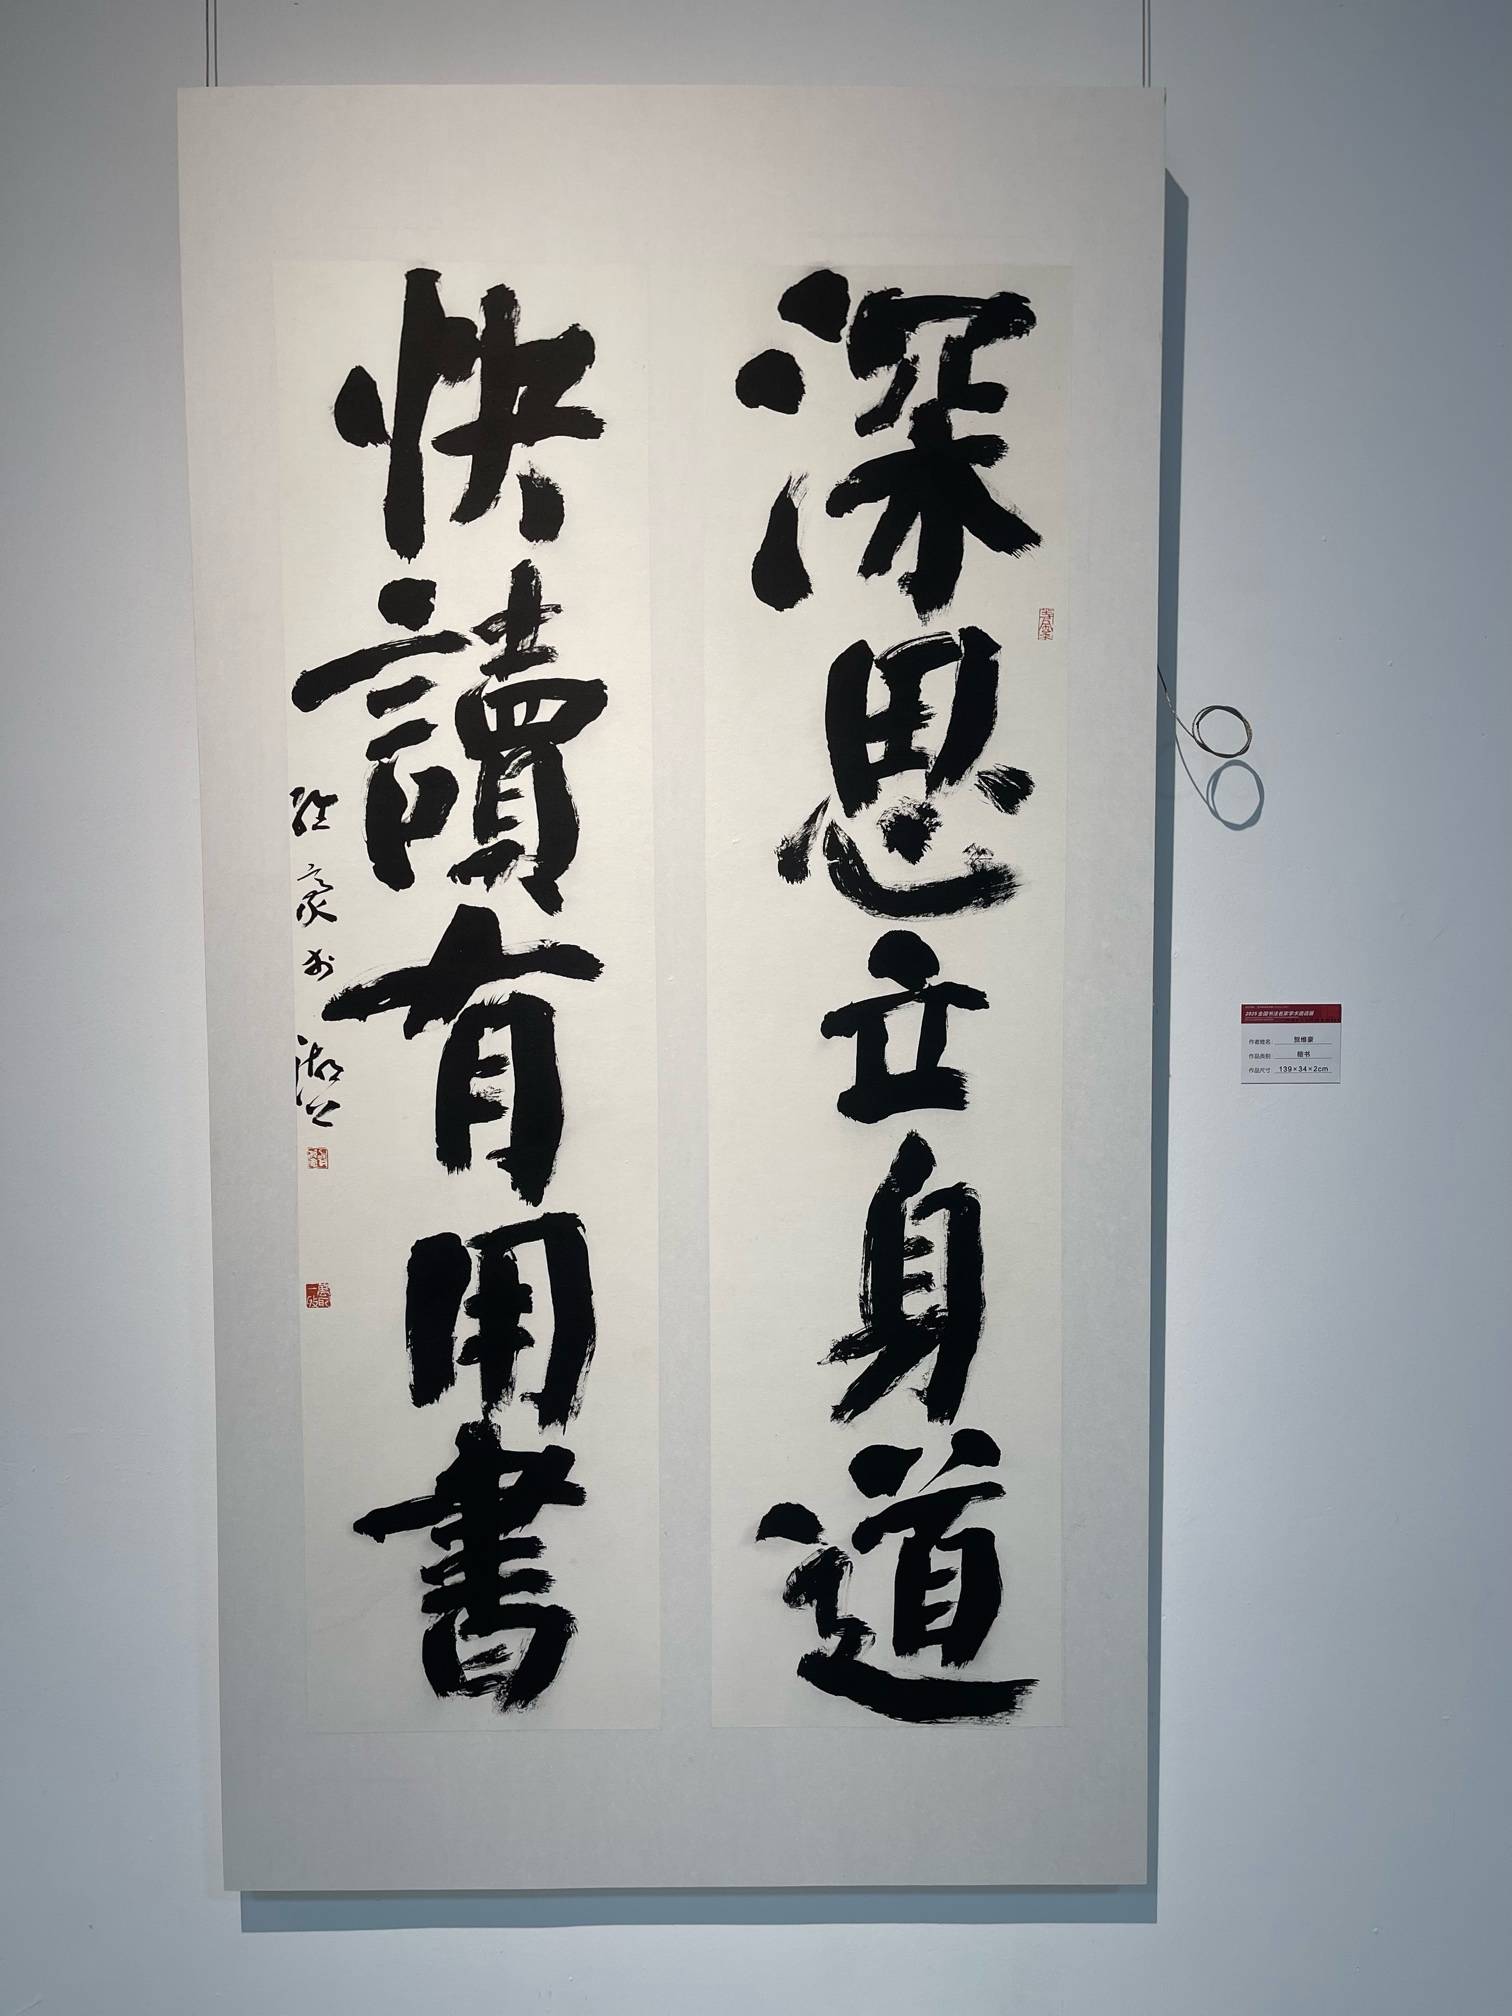 深思立身道
快讀有用書
維豪於湖上
2025全国书法名家学术邀请展
作者姓名 贺维豪
作品类别 楷书
作品尺寸 139×34×2cm